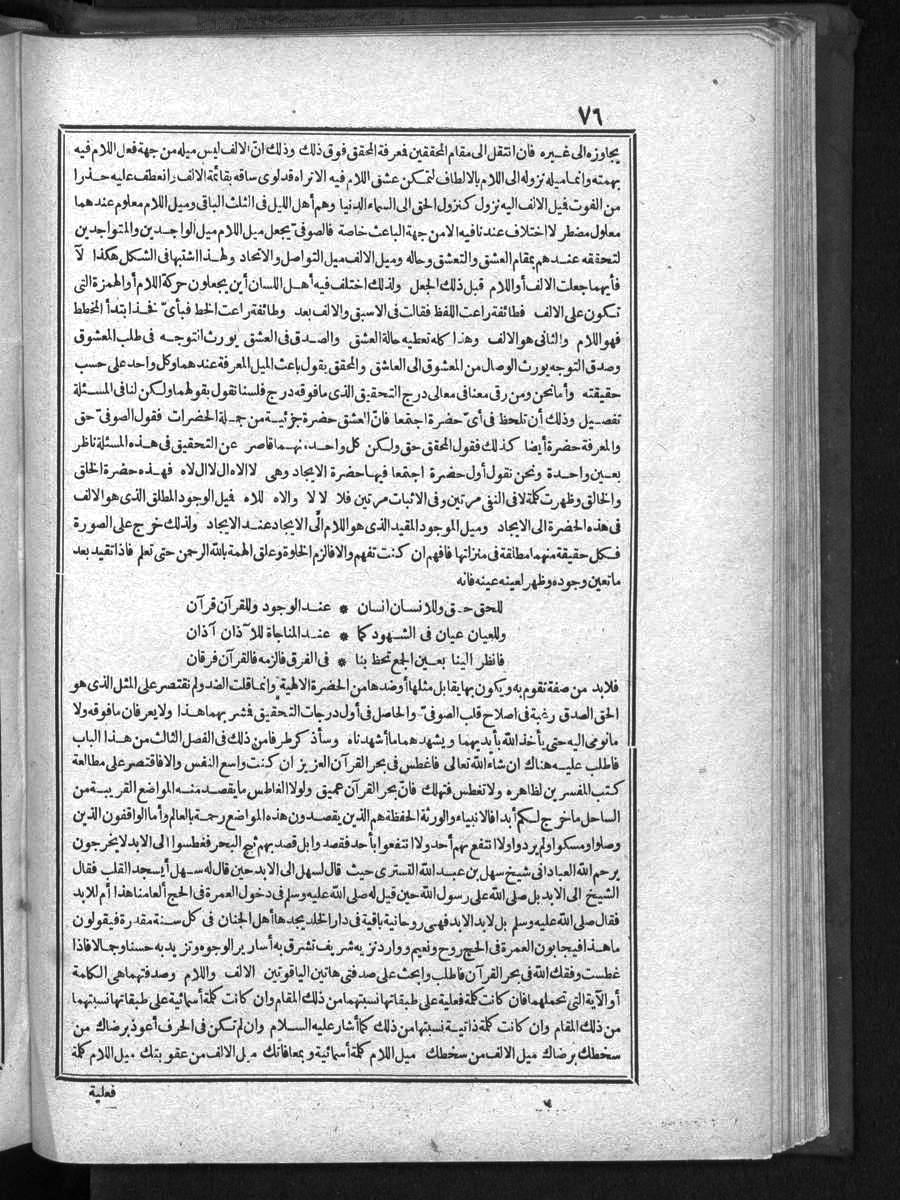 ٧٦
يجاوزه الى غيره فان انتقل الى مقام المحققين فعرفة المحقق فوق ذلك وذلك انّ الالف ليس ميله من جهة فعل اللام فيه
بهمته وانما ميله نزوله الى اللام بالالطاف لتمكن عشق اللام فيه الاتراه قد لوى ساقه بقائمة الالف وانعطف عليه حذرا
من الفوت فيل الالف اليه نزول كنزول الحق الى السماء الدنيا وهم أهل الليل فى الثلث الباقى وميل اللام معلوم عندهما
معلول مضطر لا اختلاف عندنا فيه الا من جهة الباعث خاصة فالصوفىّ يجعل ميل اللام ميل الواجدين والمتواجدين
لتحققه عندهم بمقام العشق والتعشق وحاله وميل الالف ميل التواصل والاتحاد ولهذا اشتبها فى الشكل هكذا لآ
فأيهما جعلت الالف أو اللام قبل ذلك الجعل ولذلك اختلف فيه أهل اللسان أين يجعلون حركة اللام أو الهمزة التى
تكون على الالف فطائفة راعت اللفظ فقالت فى الاسبق والالف بعد وطائفة راعت الخط فبأىّ فخذ ابتدأ المخطط
فهو اللام والثانى هو الالف وهذا كله تعطيه حالة العشق والصدق فى العشق يورث التوجه فى طلب المعشوق
وصدق التوجه يورث الوصال من المعشوق الى العاشق والمحقق يقول باعث الميل المعرفة عندهما وكل واحد على حسب
حقيقته وأما نحن ومن رقى معنا فى معالى درج التحقيق الذى ما فوقه درج فلسنا نقول بقولهما ولكن لنا فى المسئلة
تفصيل وذلك أن تلحظ فى أىّ حضرة اجتمعا فانّ العشق حضرة جزئية من جملة الحضرات فقول الصوفىّ حق
والمعرفة حضرة أيضا كذلك فقول المحقق حق ولكن كل واحد منهما قاصر عن التحقيق فى هذه المسئلة ناظر
بعين واحدة ونحن نقول أول حضرة اجتمعا فيها حضرة الايجاد وهى لا الاه ال لا ال لاه فهذه حضرة الخلق
والخالق وظهرت كلة لا فى النفى مرتين وفى الاثبات مرتين فلا لا لا والاه للاه فيل الوجود المطلق الذى هو الالف
فى هذه الحضرة الى الايجاد وميل الموجود المقيد الذى هو اللام الى الايجاد عند الايجاد ولذلك خرج على الصورة
فكل حقيقة منهما مطلقة فى منزلتها فافهم ان كنت تفهم والا فالزم الخلوة وعلق الهمة بالله الرحمن حتى تعلم فاذا تقيد بعد
ما تعين وجوده وظهر لعينه عينه فانه
للحق حق وللانسان انسان * عند الوجود وللقرآن قرآن
وللعيان عيان فى الشهود كما * عند المناجاة للآذان آذان
فانظر الينا بعين الجمع تحظ بنا * فى الفرق فالزمه فالقرآن فرقان
فلابد من صفة تقوم به ويكون بها يقابل مثلها أو ضدها من الحضرة الالهية وانما قلت الضد ولم نقتصر على المثل الذى هو
الحق الصدق رغبة فى اصلاح قلب الصوفىّ والحاصل فى أول درجات التحقيق فشربهما هذا ولا يعرفان ما فوقه ولا
ما نومى اليه حتى يأخذ الله بأيديهما ويشهدهما ما أشهدناه وسأذكر طرفا من ذلك فى الفصل الثالث من هذا الباب
فاطلب عليه هناك ان شاء الله تعالى فاغطس فى بحر القرآن العزيز ان كنت واسع النفس والا فاقتصر على مطالعة
كتب المفسرين لظاهره ولا تغطس فتهلك فانّ بحر القرآن عميق ولولا الغاطس ما يقصد منه المواضع القريبة من
الساحل ما خرج لكم أبدا فالانبياء والورثة الحفظة هم الذين يقصدون هذه المواضع رحمة بالعالم وأما الواقفون الذين
وصلوا ومسكوا ولم يردوا ولا انتفع بهم أحد ولا انتفعوا بأحد فقصدوا بل قصد بهم ثبج البحر فغطسوا الى الابد لا يخرجون
يرحم الله العبادانى شيخ سهل بن عبد الله التسترى حيث قال لسهل الى الابد حين قال له سهل أيسجد القلب فقال
الشيخ الى الابد بل صلى الله على رسول الله حين قيل له صلى الله عليه وسلم فى دخول العمرة فى الحج ألعامنا هذا أم للابد
فقال صلى الله عليه وسلم بل لابد الابد فهى روحانية باقية فى دار الخلد يجدها أهل الجنان فى كل سنة مقدرة فيقولون
ما هذا فيجابون العمرة فى الحج روح ونعيم ووارد نزيه شريف تشرق به أسارير الوجوه وتزيد به حسنا وجمالا فاذا
غطست وفقك الله فى بحر القرآن فاطلب وابحث على صدفتى هاتين الياقوتين الالف واللام وصدفتهما هى الكلمة
أو الآية التى تحملهما فان كانت كلة فعلية على طبقاتها نسبتهما من ذلك المقام وان كانت كلة أسمائية على طبقاتها نسبتهما
من ذلك المقام وان كانت كلة ذاتية نسبتها من ذلك كما أشار عليه السلام وان لم تكن فى الحرف أعوذ برضاك من
سخطك برضاك ميل الالف من سخطك ميل اللام كلة أسمائية وبمعافاتك ميل الالف من عقوبتك ميل اللام كلة
فعلية